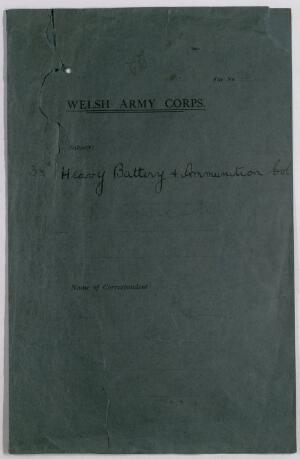 File No.
WELSH ARMY CORPS.
Subject:
38 Heavy Battery & Ammunition Col
Name of Correspondent